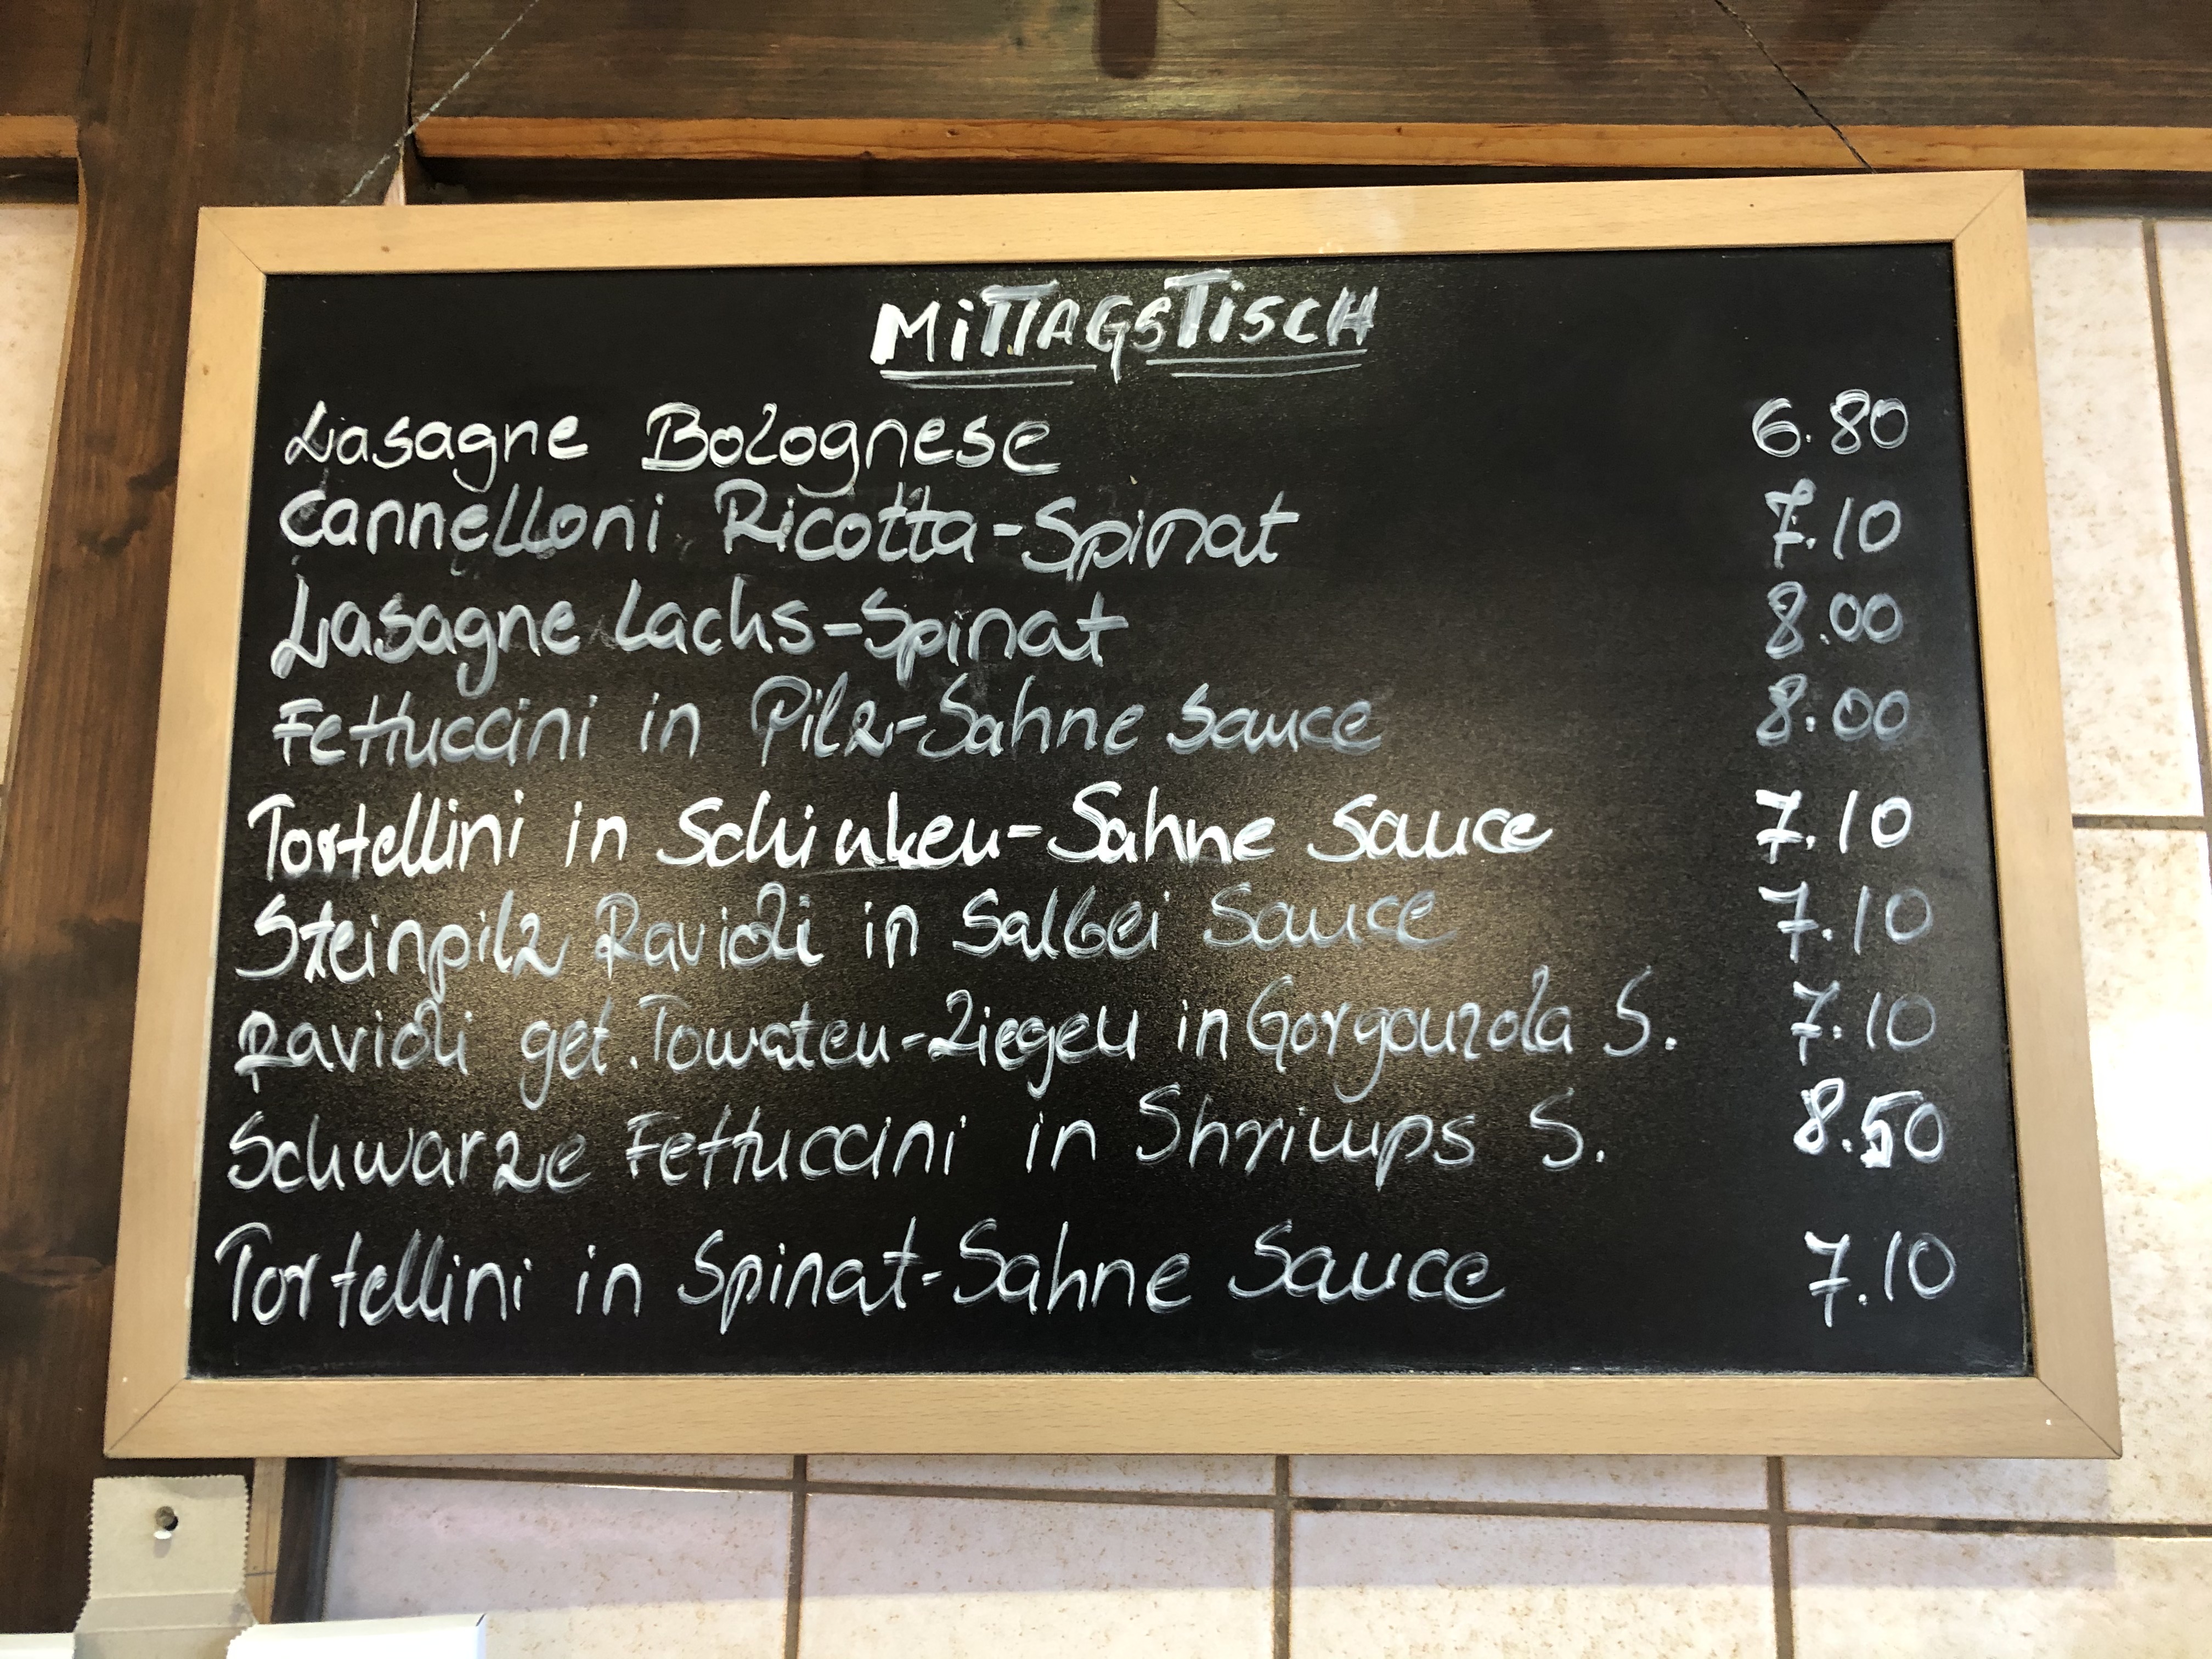 MiTTAGSTiSCH
Lasagne Bolognese 6.80
Cannelloni Ricotta-Spinat 7.10
Lasagne Lachs-Spinat 8.00
Fettuccini in Pilz-Sahne Sauce 8.00
Tortellini in Schinken-Sahne Sauce 7.10
Steinpilz Ravioli in Salbei Sauce 7.10
Ravioli get. Tomaten-Ziegen in Gorgonzola S. 7.10
Schwarze Fettuccini in Shrimps S. 8.50
Tortellini in Spinat-Sahne Sauce 7.10